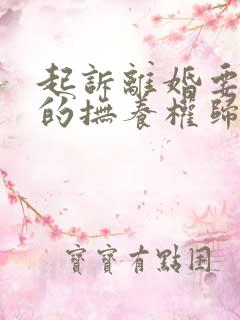 起訴離婚要
的撫養權歸
寶寶有點困